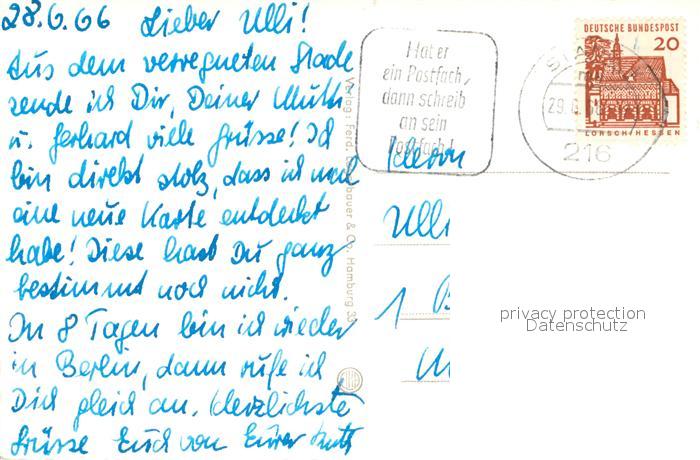 28.6.66 Lieber Ulli!
Aus dem verregneten Stade
sende ich Dir, Deiner Mutti
u. Gerhard viele Grüsse! Ich
bin direkt stolz, dass ich noch
eine neue Karte entdeckt
habe! Diese hast Du ganz
bestimmt noch nicht.
In 8 Tagen bin ich wieder
in Berlin, dann rufe ich
Dich gleich an. Herzlichste
Grüsse Euch von Eurer Ruth
Hat er
ein Postfach,
dann schreib
an sein
Postfach!
DEUTSCHE BUNDESPOST
20
LORSCH/HESSEN
29.6.
216
Verlag: Ferd. & Co., Hamburg
Herrn
Ulli
1 B
privacy protection
Datenschutz